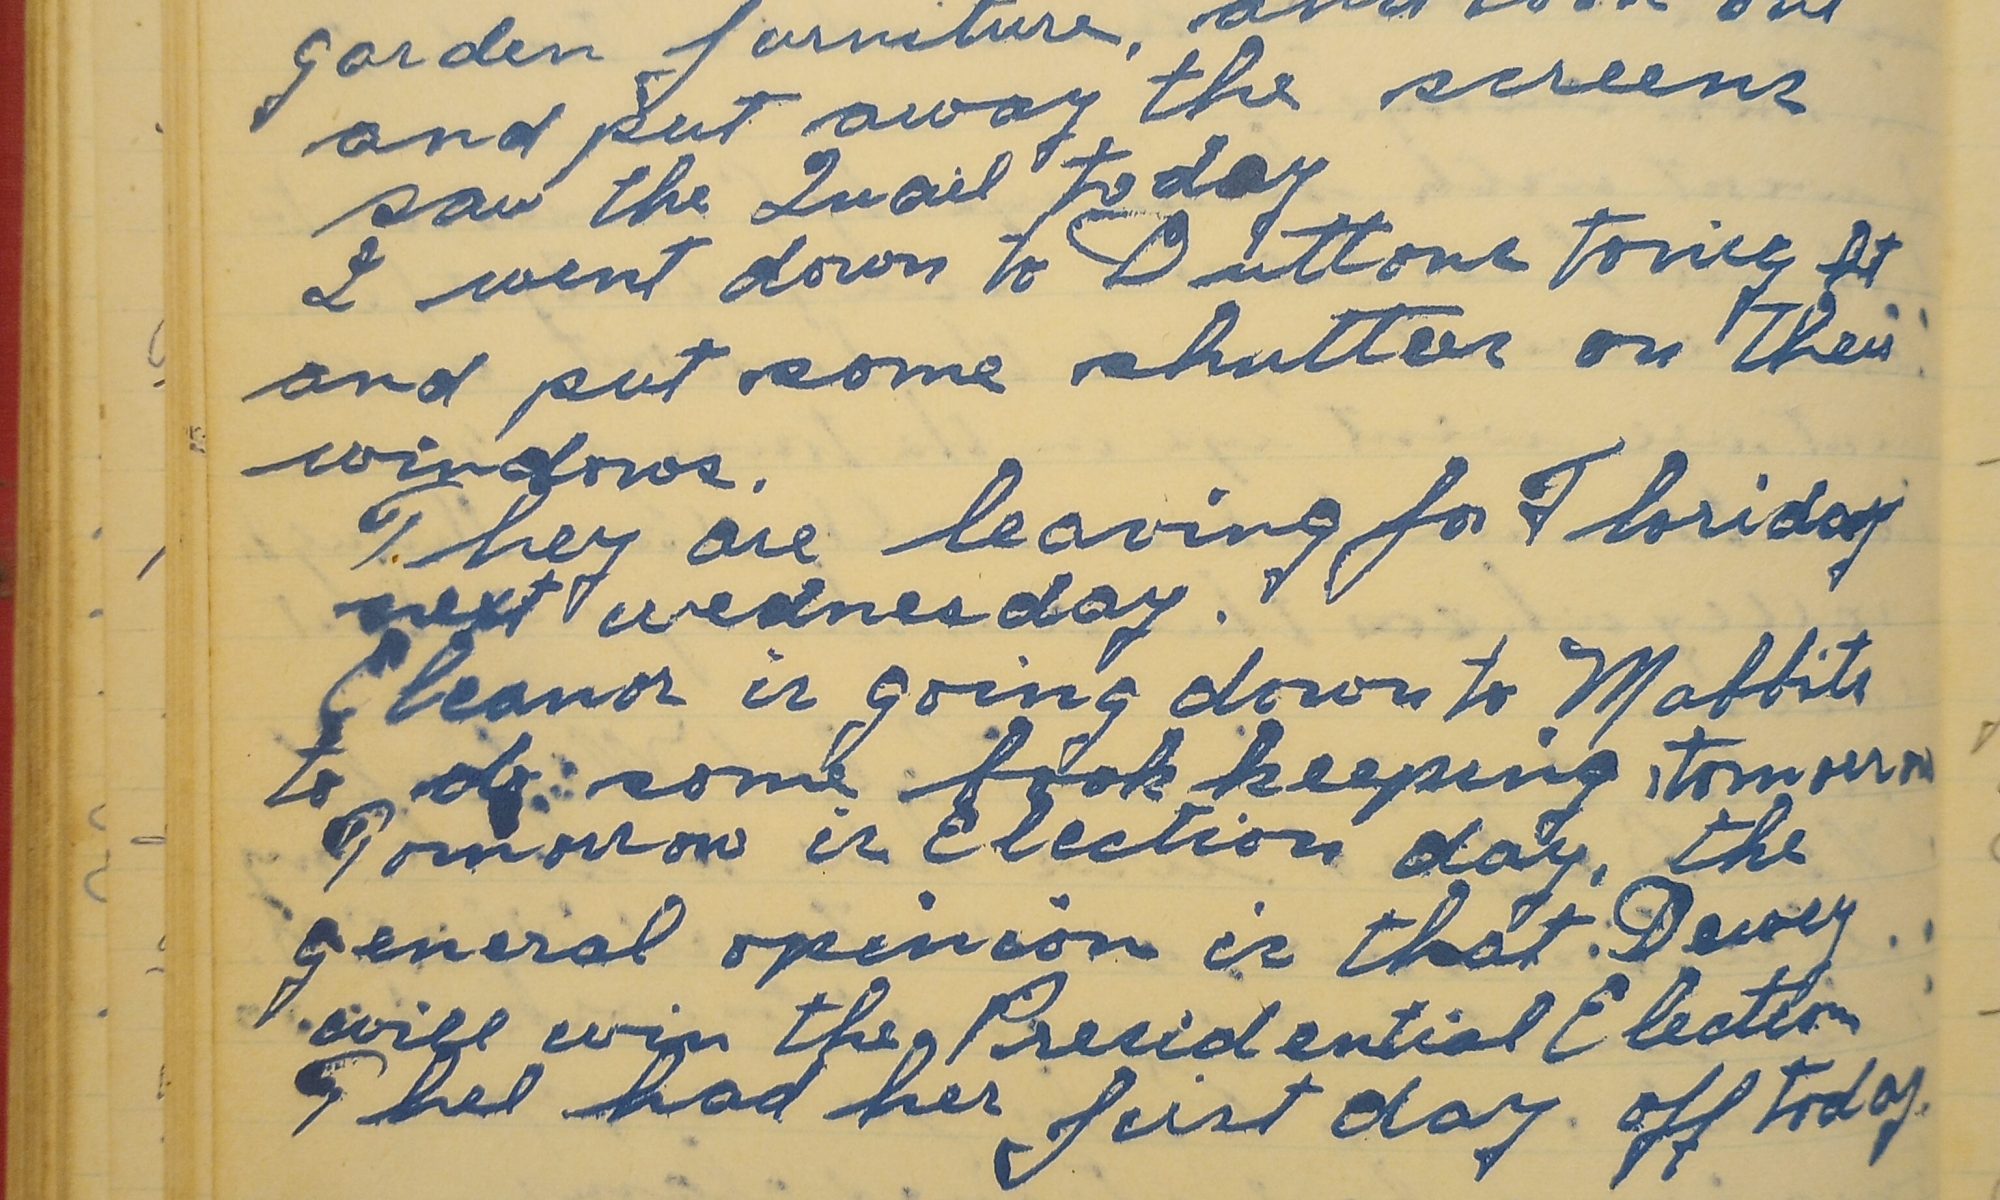 garden furniture, and took out
and put away the screens
saw the Quail today
I went down to Duttons tonight
and put some shutters on their
windows.
They are leaving for Floriday
next wednesday.
Eleanor is going down to Mabbits
to do some book keeping tomorrow
Tomorrow is Election day, the
general opinion is that Dewey
will win the Presidential Election
Thel had her first day off today.